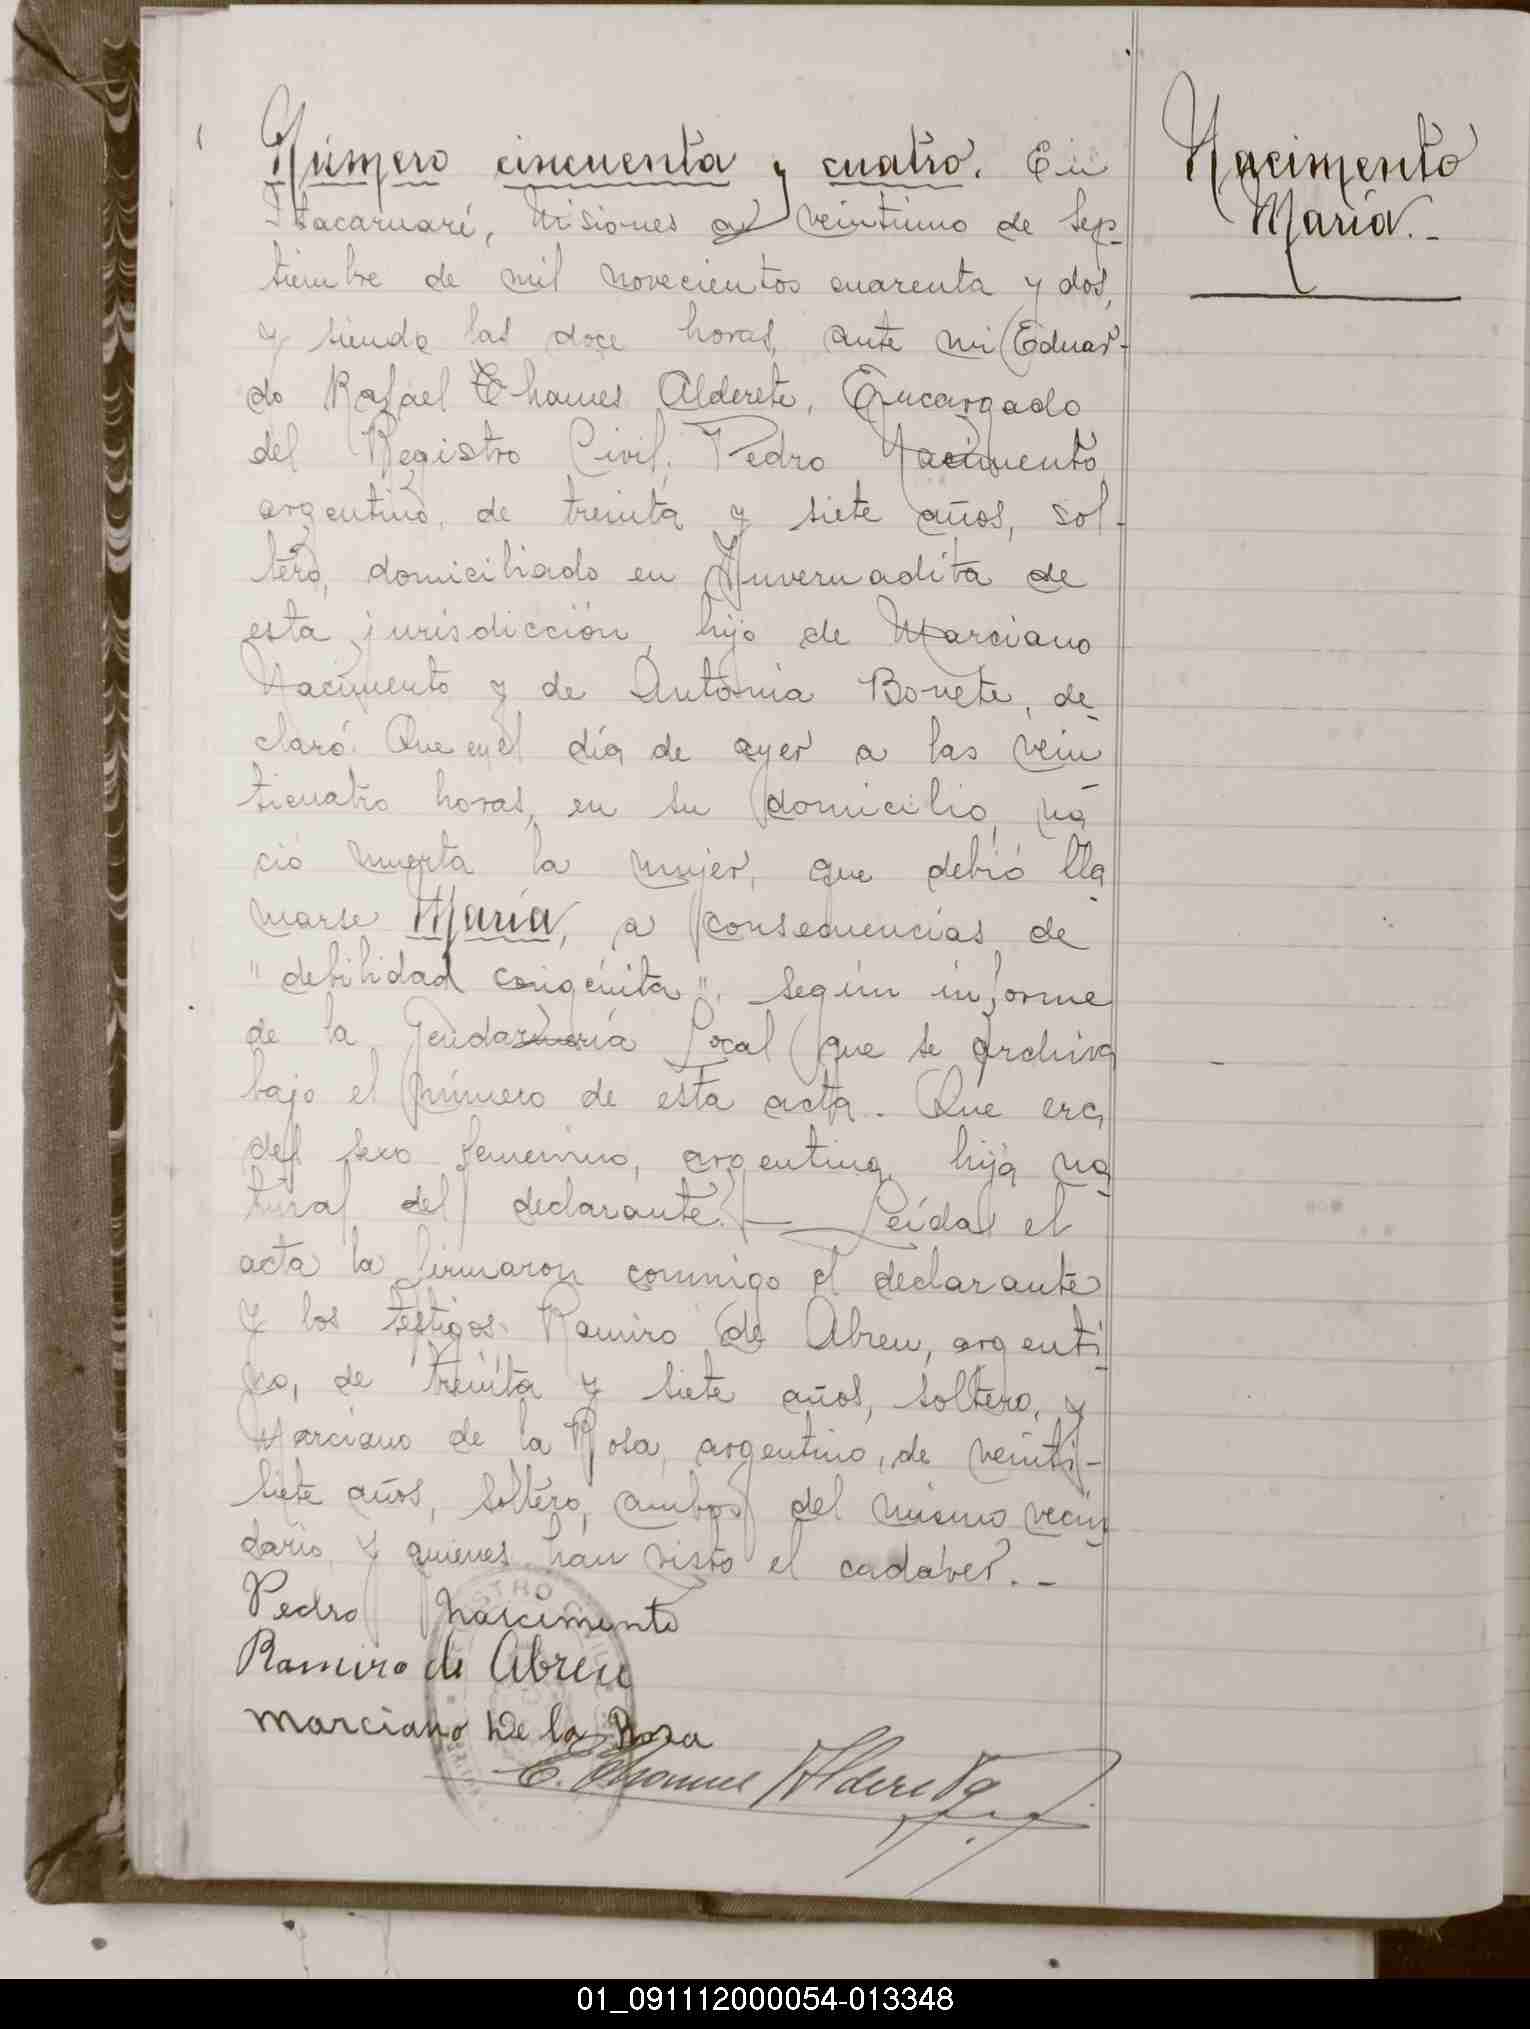 Número cincuenta y cuatro. En
Itacaruaré, Misiones a veintiuno de Sep-
tiembre de mil novecientos cuarenta y dos,
y siendo las doce horas, ante mi Eduar-
do Rafael Thames Alderete, Encargado
del Registro Civil. Pedro Nacimento
argentino, de treinta y siete años, sol-
tero, domiciliado en Invernadita de
esta jurisdicción, hijo de Marciano
Nacimento y de Antonia Bonete, de-
claró: Que en el día de ayer a las vein-
ticuatro horas, en su domicilio, na-
ció muerta la mujer, que debió lla-
marse María, a consecuencias de
"debilidad congénita", según informe
de la Gendarmería Local que se archiva
bajo el número de esta acta. Que era
del sexo femenino, argentina, hija na-
tural del declarante. — Leída el
acta la firmaron conmigo el declarante
y los testigos Ramiro de Abreu, argenti-
no, de treinta y siete años, soltero, y
Marciano de la Rosa, argentino, de veinti-
siete años, soltero, ambos del mismo vecin-
dario y quienes han visto el cadáver. -
Pedro Narcimento
Ramiro de Abreu
Marciano De la Rosa
E. Thames Alderete
Nacimento
María. -
01_091112000054-013348